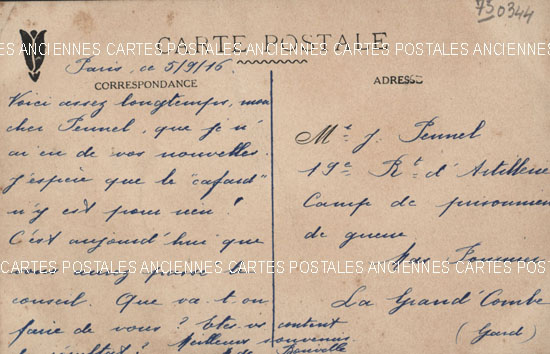 75 0344
CARTE POSTALE
CARTES POSTALES ANCIENNES CARTES POSTALES ANCIENNES CARTES POSTALES ANCIENNES
Paris, ce 5/9/16.
CORRESPONDANCE
ADRESSE
Voici assez longtemps, mon
cher Pennel, que je n'
ai eu de vos nouvelles.
J'espère que le "cafard"
n'y est pour rien!
C'est aujourd'hui que
conseil. Que va-t-on
faire de vous? Etes vs content
Meilleurs souvenirs
Mr J. Pennel
19e Rt d'Artillerie
Camp de prisonniers
de guerre
CARTES POSTALES ANCIENNES CARTES POSTALES ANCIENNES CARTES POSTALES ANCIENNES
La Grand'Combe
(Gard)